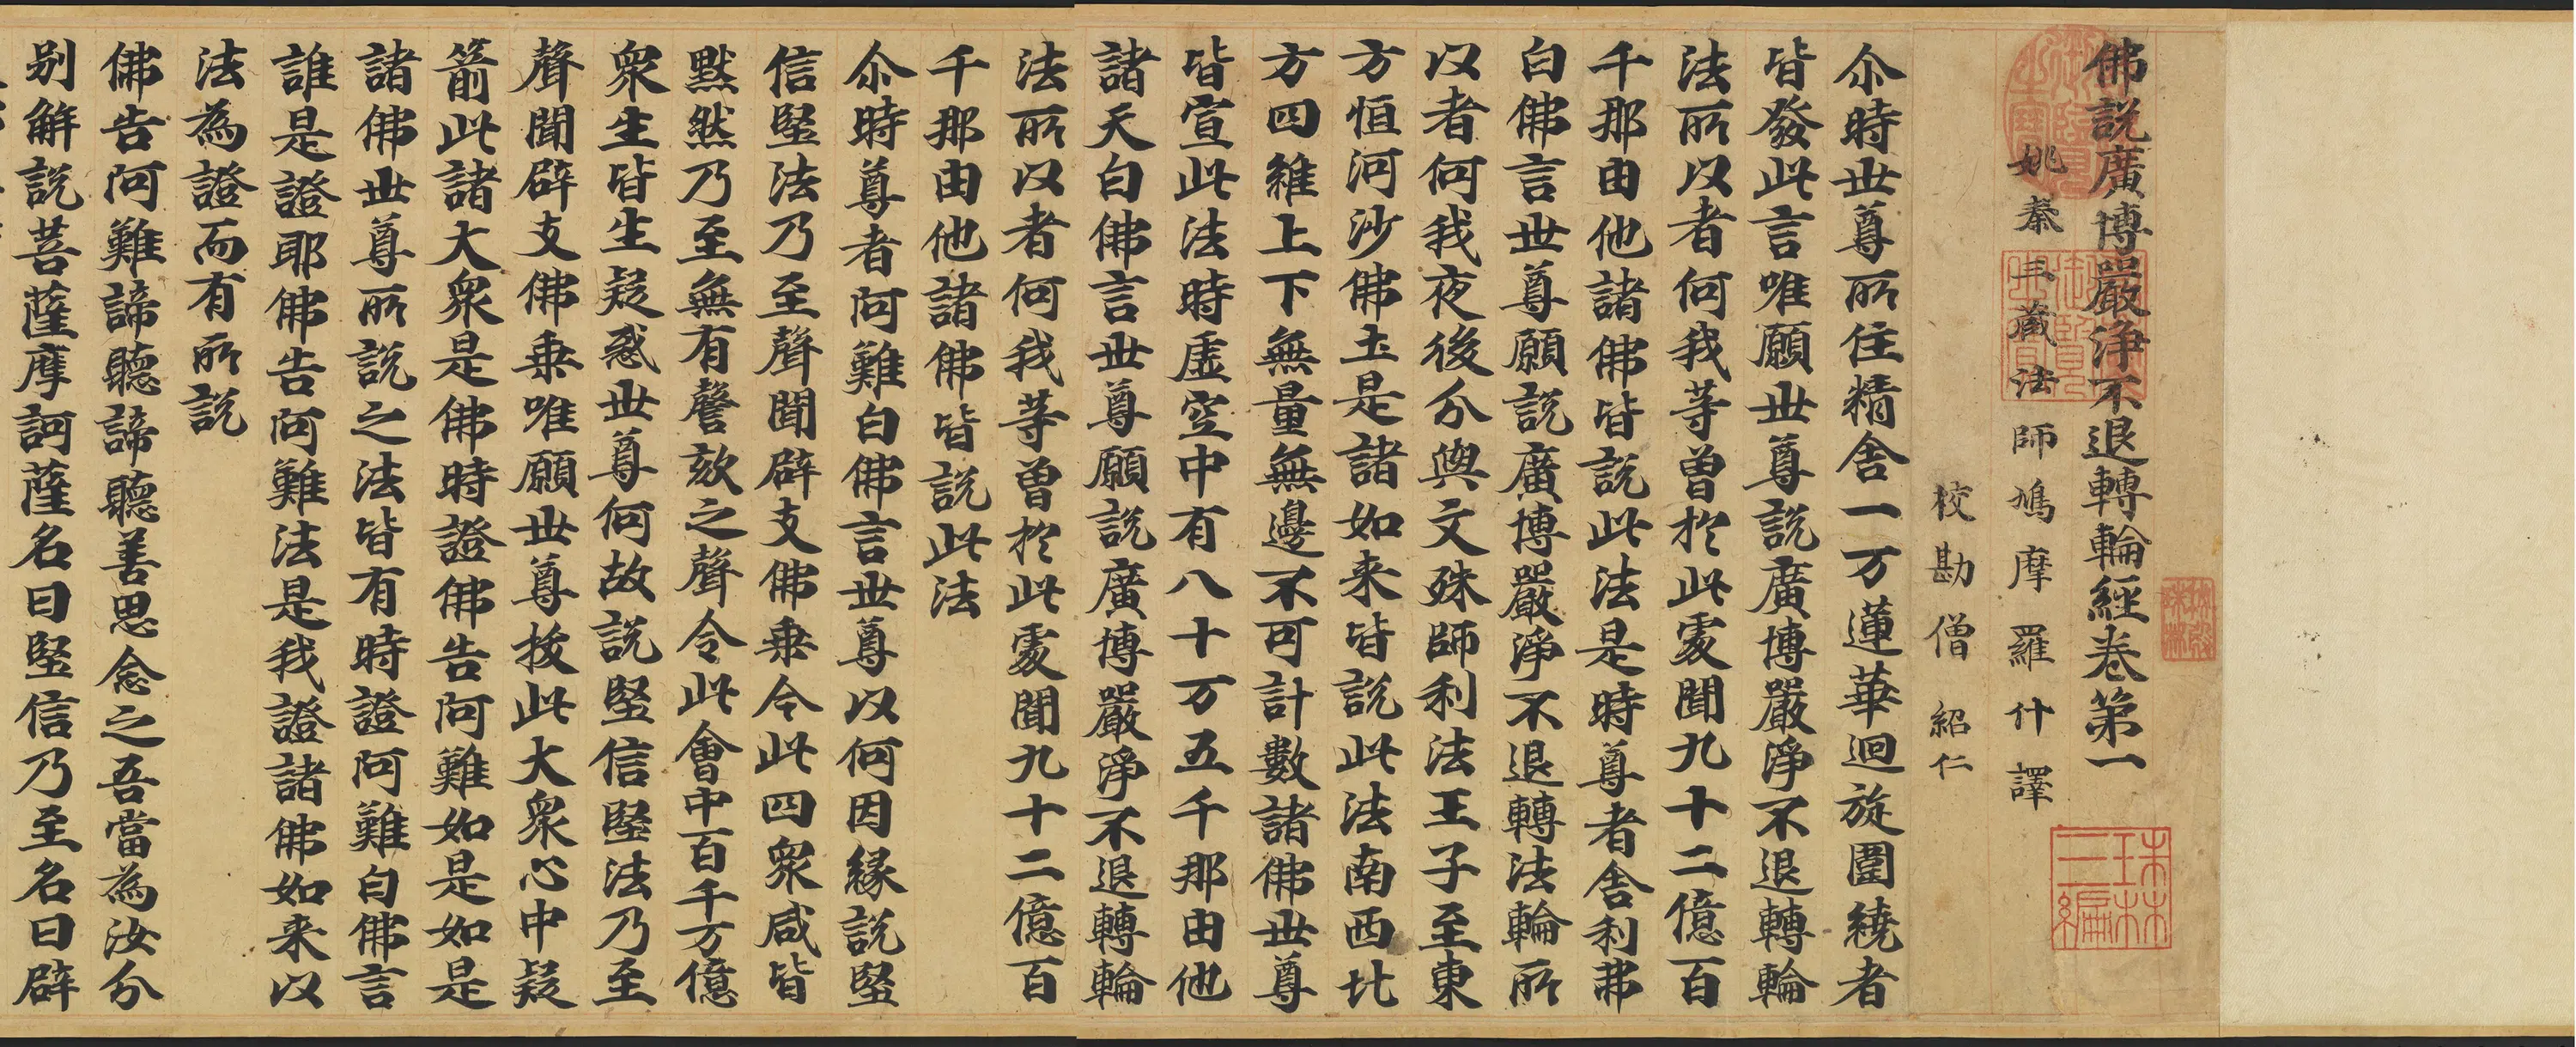 佛說廣博嚴淨不退轉輪經卷第一
姚秦三藏法師鳩摩羅什譯
校勘僧紹仁
尒時世尊所住精舍一万蓮華迴旋圍繞者
皆發此言唯願世尊說廣博嚴淨不退轉輪
法所以者何我等曾於此處聞九十二億百
千那由他諸佛皆說此法是時尊者舍利弗
白佛言世尊願說廣博嚴淨不退轉法輪所
以者何我夜後分與文殊師利法王子至東
方恒河沙佛土是諸如来皆說此法南西北
方四維上下無量無邊不可計數諸佛世尊
皆宣此法時虛空中有八十万五千那由他
諸天白佛言世尊願說廣博嚴淨不退轉輪
法所以者何我等曾於此處聞九十二億百
千那由他諸佛皆說此法
尒時尊者阿難白佛言世尊以何因緣說堅
信堅法乃至聲聞辟支佛乗令此四衆咸皆
黙然乃至無有謦欬之聲令此會中百千万億
衆生皆生疑惑世尊何故說堅信堅法乃至
聲聞辟支佛乗唯願世尊拔此大衆心中疑
箭此諸大衆是佛時證佛告阿難如是如是
諸佛世尊所說之法皆有時證阿難白佛言
誰是證耶佛告阿難法是我證諸佛如来以
法為證而有所說
佛告阿難諦聽諦聽善思念之吾當為汝分
别解說菩薩摩訶薩名曰堅信乃至名曰辟
珠林
三編